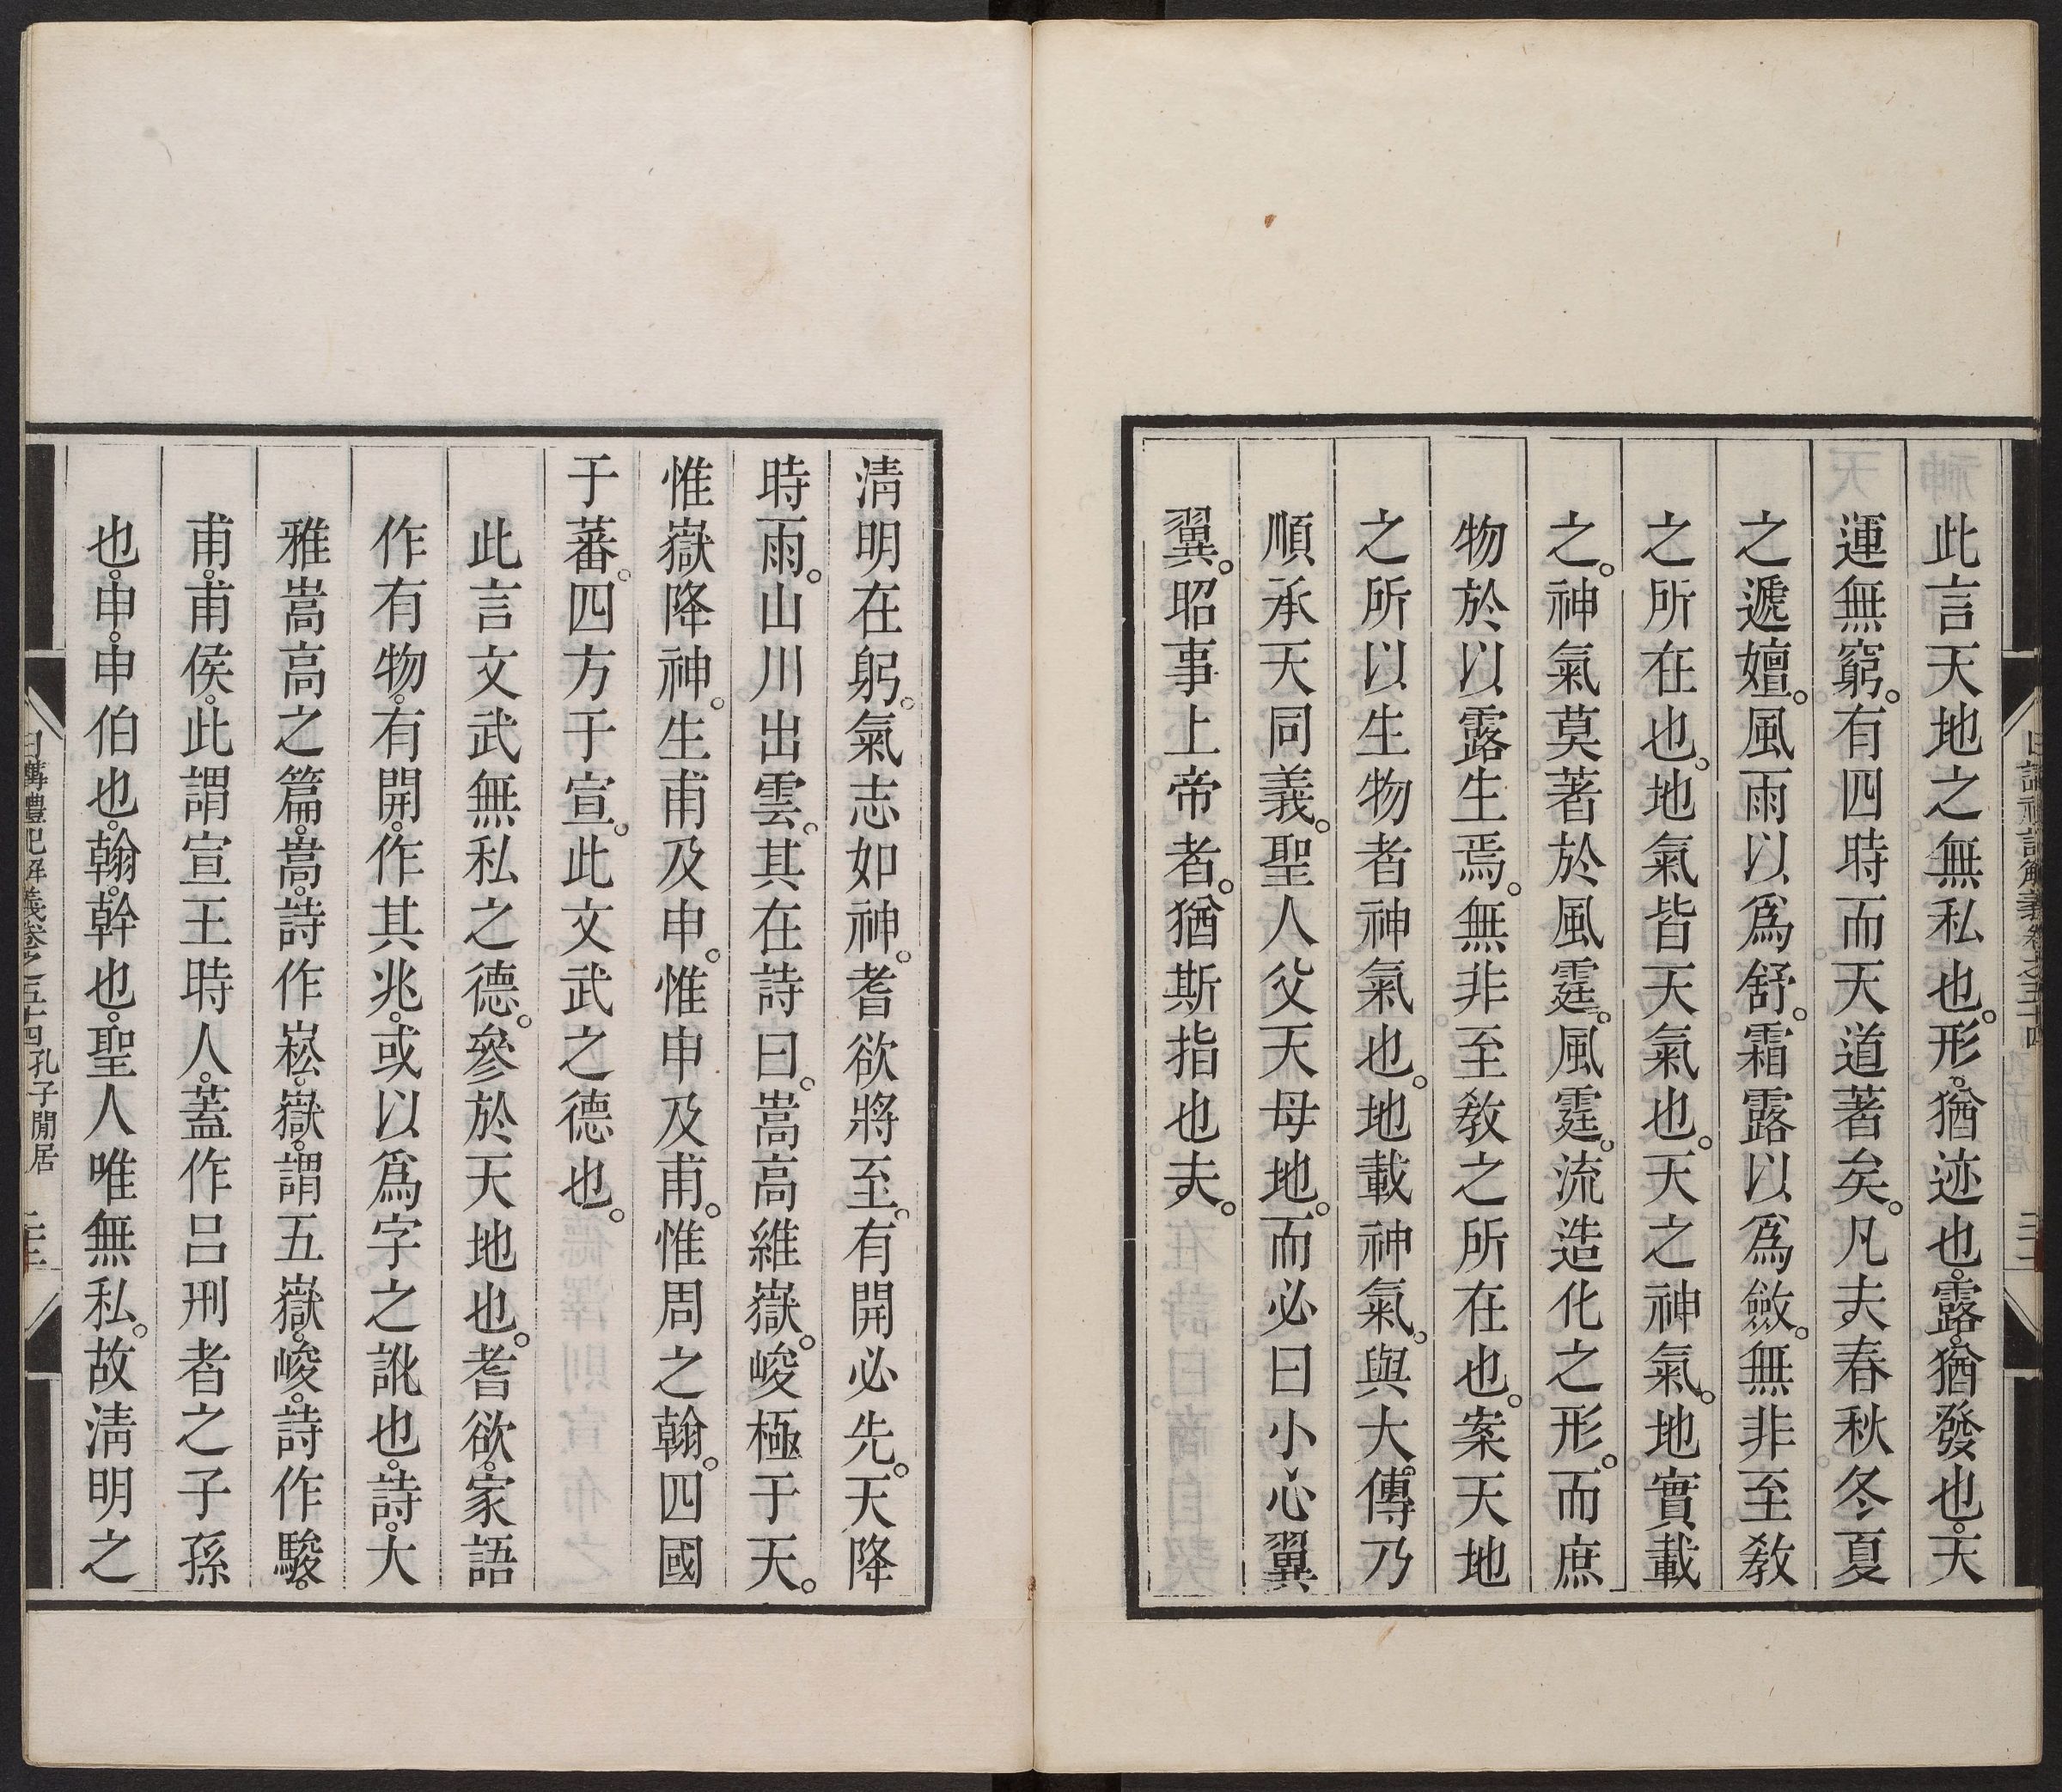 此言天地之無私也。形。猶迹也。露。猶發也。天
運無窮。有四時而天道著矣。凡夫春秋冬夏
之遞嬗。風雨以爲舒。霜露以爲斂。無非至敎
之所在也。地氣皆天氣也。天之神氣。地實載
之。神氣莫著於風霆。風霆。流造化之形。而庶
物於以露生焉。無非至敎之所在也。案天地
之所以生物者神氣也。地載神氣。與大傳乃
順承天同義。聖人父天母地。而必曰小心翼
翼。昭事上帝者。猶斯指也夫。
清明在躬。氣志如神。耆欲將至。有開必先。天降
時雨。山川出雲。其在詩曰。嵩高維嶽。峻極于天。
惟嶽降神。生甫及申。惟申及甫。惟周之翰。四國
于蕃。四方于宣。此文武之德也。
此言文武無私之德。參於天地也。耆欲。家語
作有物。有開。作其兆。或以爲字之訛也。詩。大
雅嵩高之篇。嵩。詩作崧。嶽。謂五嶽。峻。詩作駿。
甫。甫侯。此謂宣王時人。蓋作呂刑者之子孫
也。申。申伯也。翰。幹也。聖人唯無私。故淸明之
日講禮記解義卷之五十四 孔子閒居